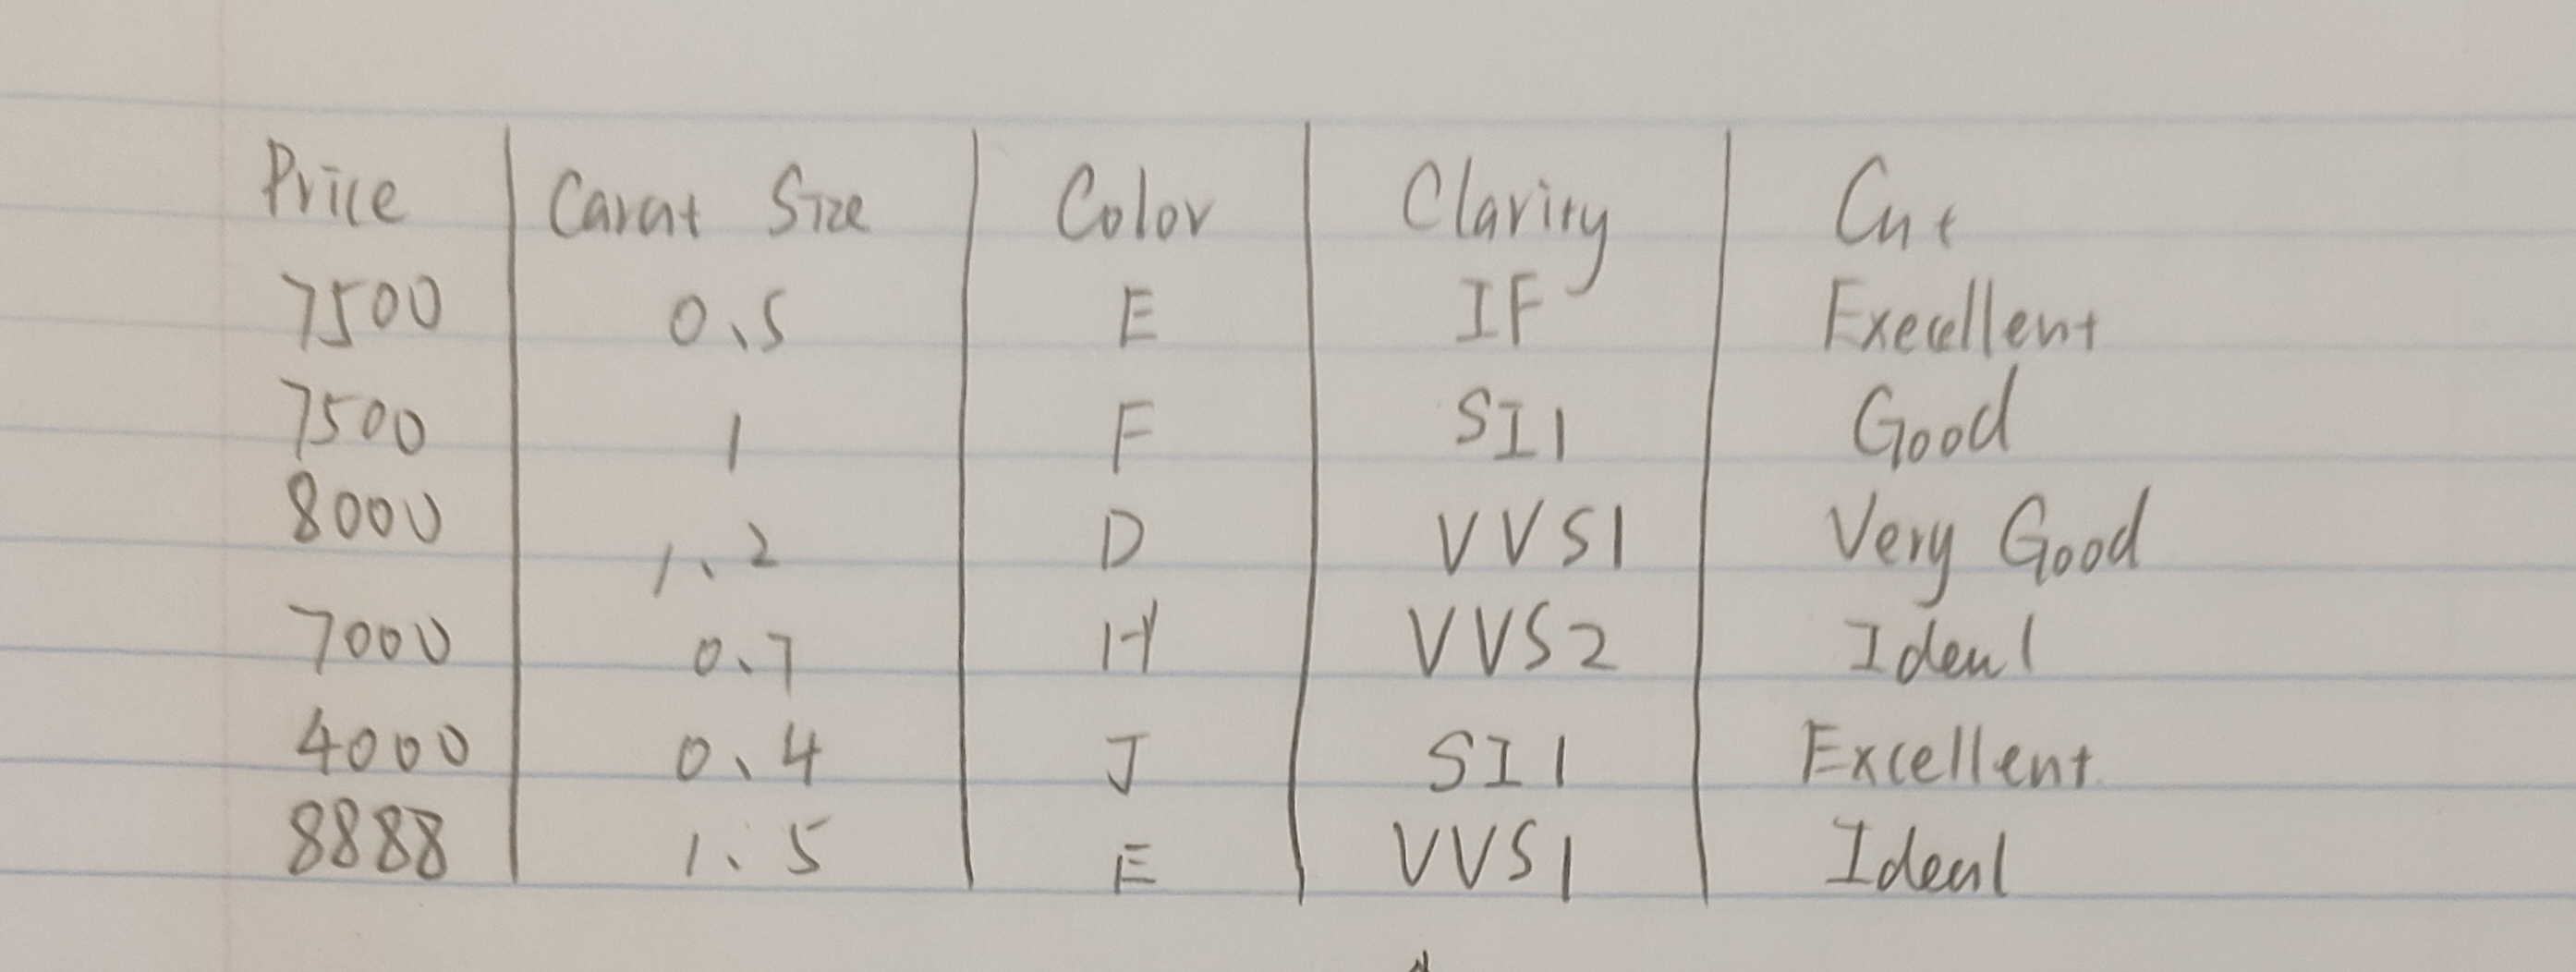 Price Carat Size Color Clarity Cut
7500 0.5 E IF Execellent
7500 1 F SI1 Good
8000 1.2 D VVS1 Very Good
7000 0.7 H VVS2 Ideal
4000 0.4 J SI1 Excellent
8888 1.5 E VVS1 Ideal